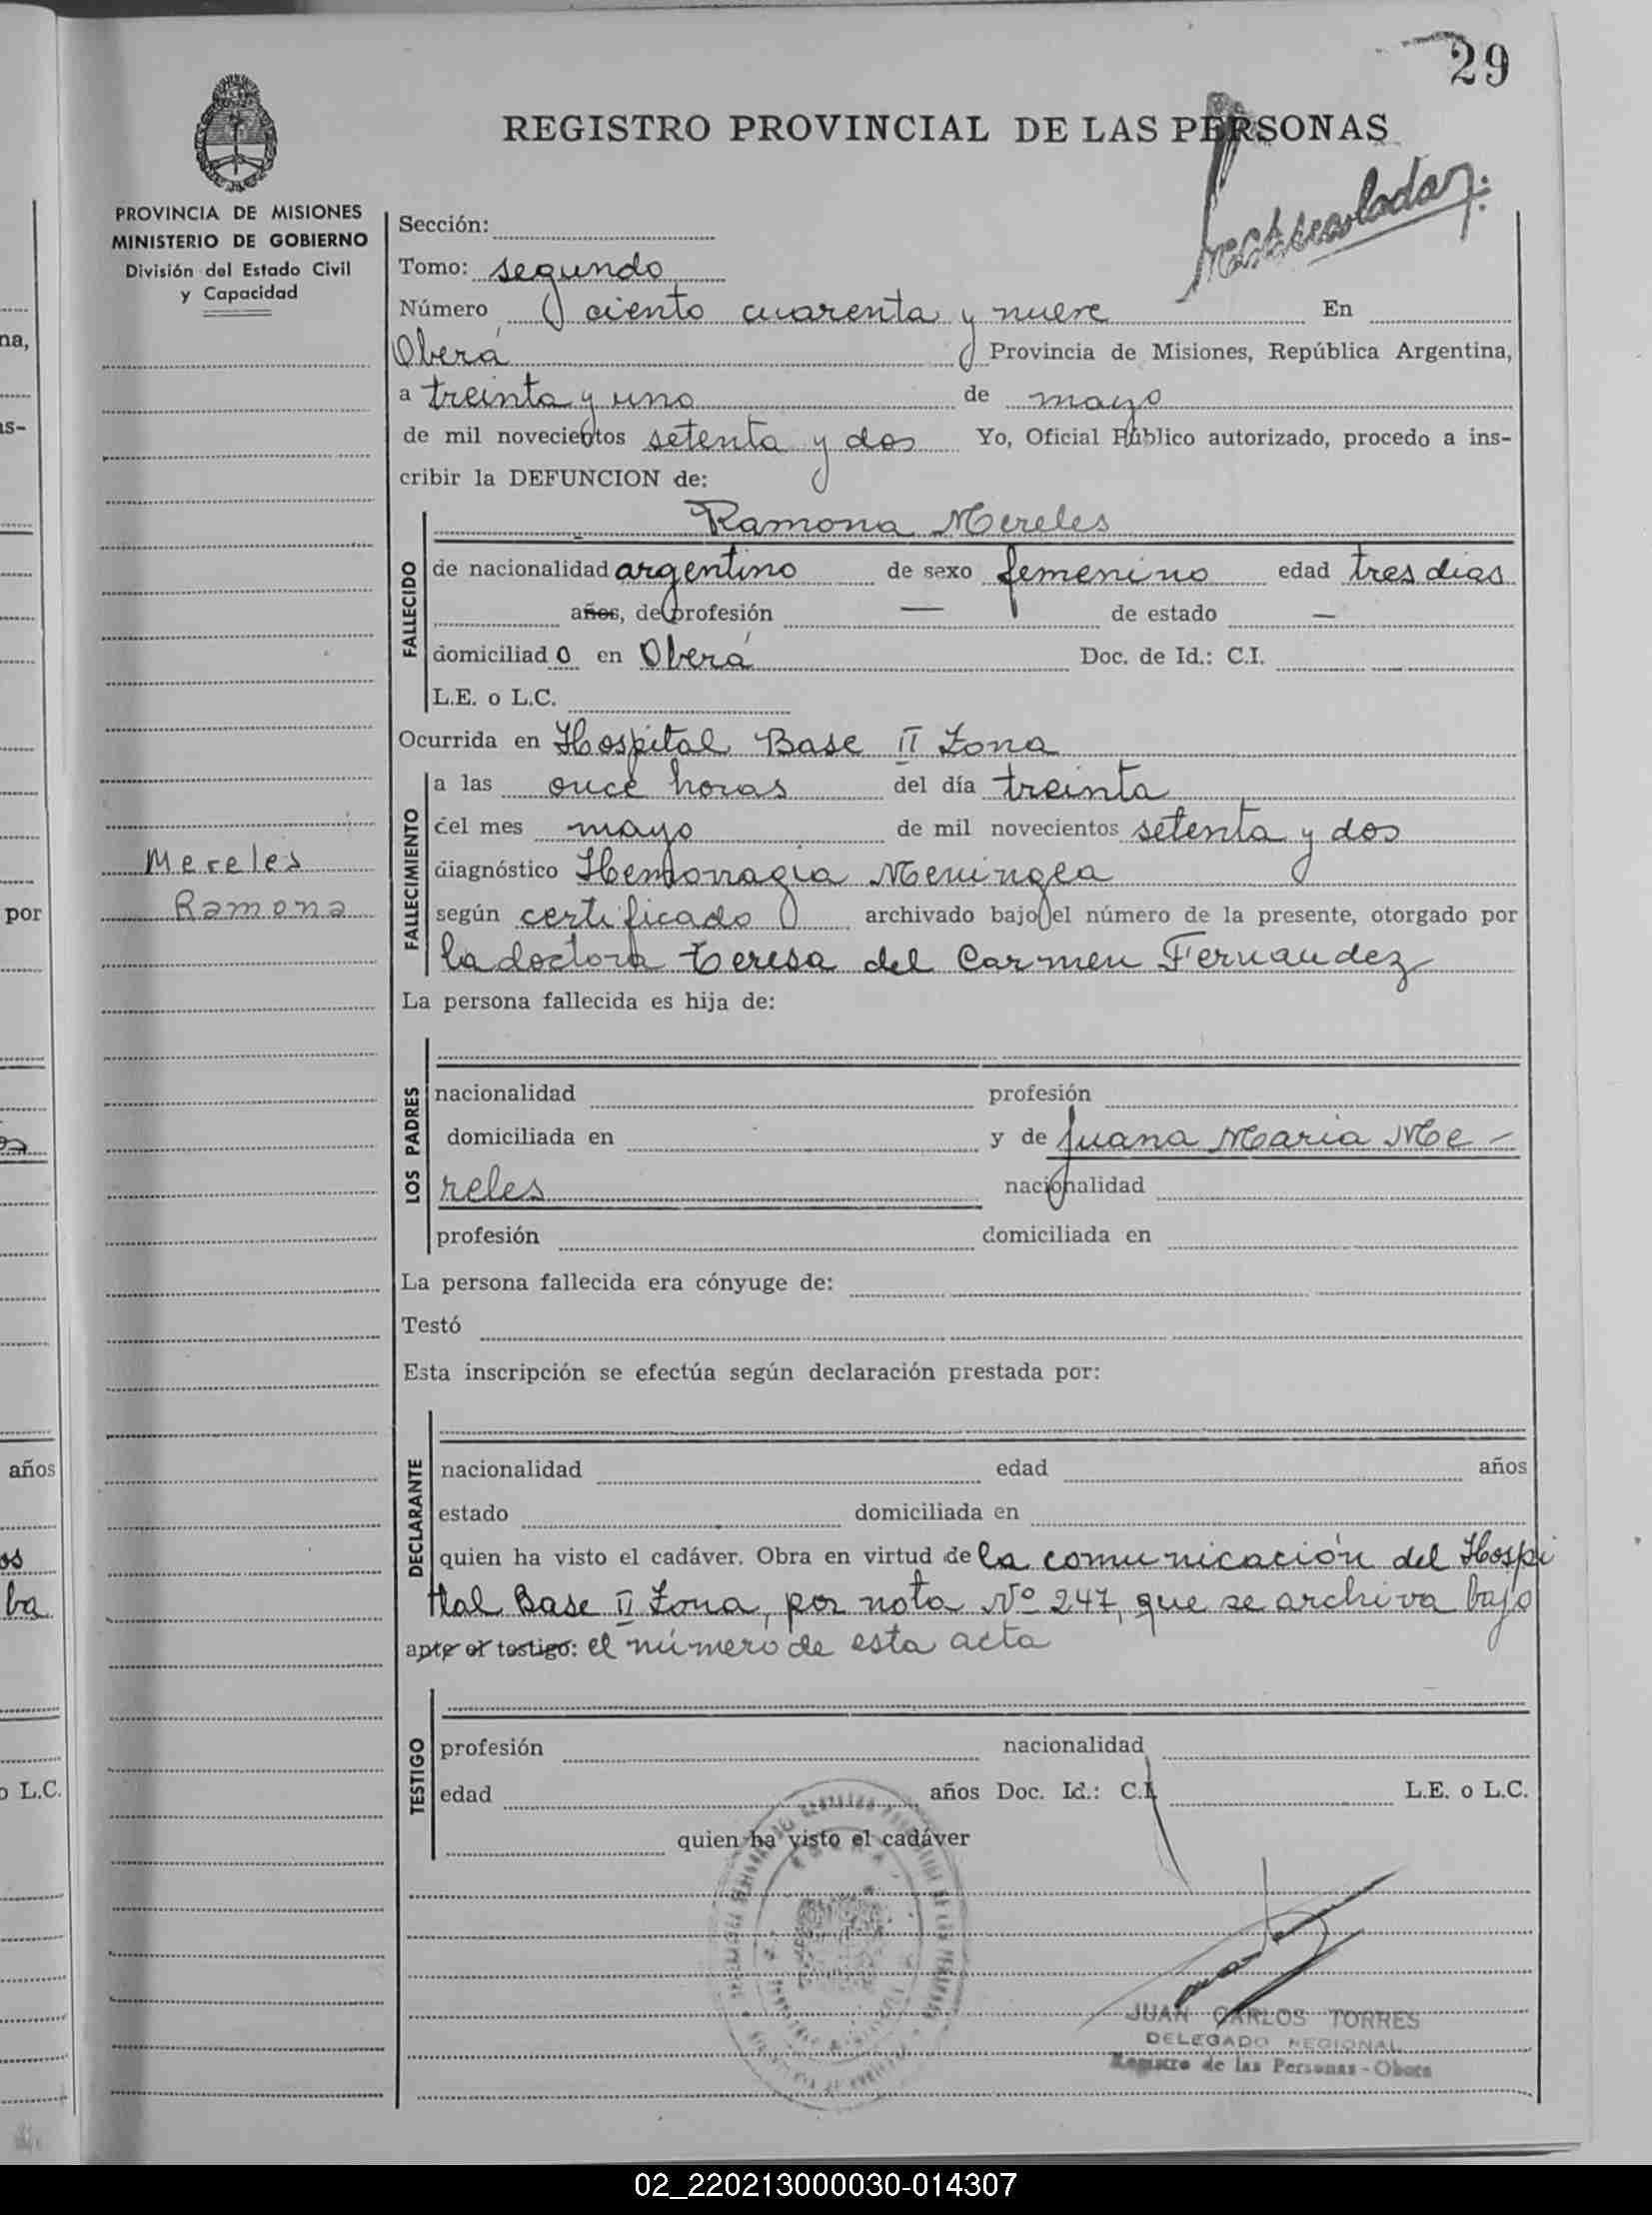 29
REGISTRO PROVINCIAL DE LAS PERSONAS
PROVINCIA DE MISIONES
MINISTERIO DE GOBIERNO
División del Estado Civil
y Capacidad
Sección:
Tomo: segundo
Número ciento cuarenta y nueve En
Oberá Provincia de Misiones, República Argentina,
a treinta y uno de mayo
de mil novecientos setenta y dos Yo, Oficial Público autorizado, procedo a ins-
cribir la DEFUNCION de:
Ramona Mereles
FALLECIDO
de nacionalidad argentino de sexo femenino edad tres dias
años, de profesión — de estado —
domiciliado en Oberá Doc. de Id.: C.I.
L.E. o L.C.
Ocurrida en Hospital Base II Zona
FALLECIMIENTO
a las once horas del día treinta
del mes mayo de mil novecientos setenta y dos
diagnóstico Hemorragia Meningea
Mereles
Ramona
según certificado archivado bajo el número de la presente, otorgado por
la doctora Teresa del Carmen Fernandez
La persona fallecida es hija de:
LOS PADRES
nacionalidad profesión
domiciliada en y de Juana Maria Me-
reles nacionalidad
profesión domiciliada en
La persona fallecida era cónyuge de:
Testó
Esta inscripción se efectúa según declaración prestada por:
DECLARANTE
nacionalidad edad años
estado domiciliada en
quien ha visto el cadáver. Obra en virtud de la comunicación del Hospi
tal Base II Zona, por nota Nº 247, que se archiva bajo
ante el testigo: el número de esta acta
TESTIGO
profesión nacionalidad
edad años Doc. Id.: C.I. L.E. o L.C.
quien ha visto el cadáver
JUAN CARLOS TORRES
DELEGADO REGIONAL
Registro de las Personas - Obera
na,
as-
por
años
os
ba
o L.C.
02_220213000030-014307